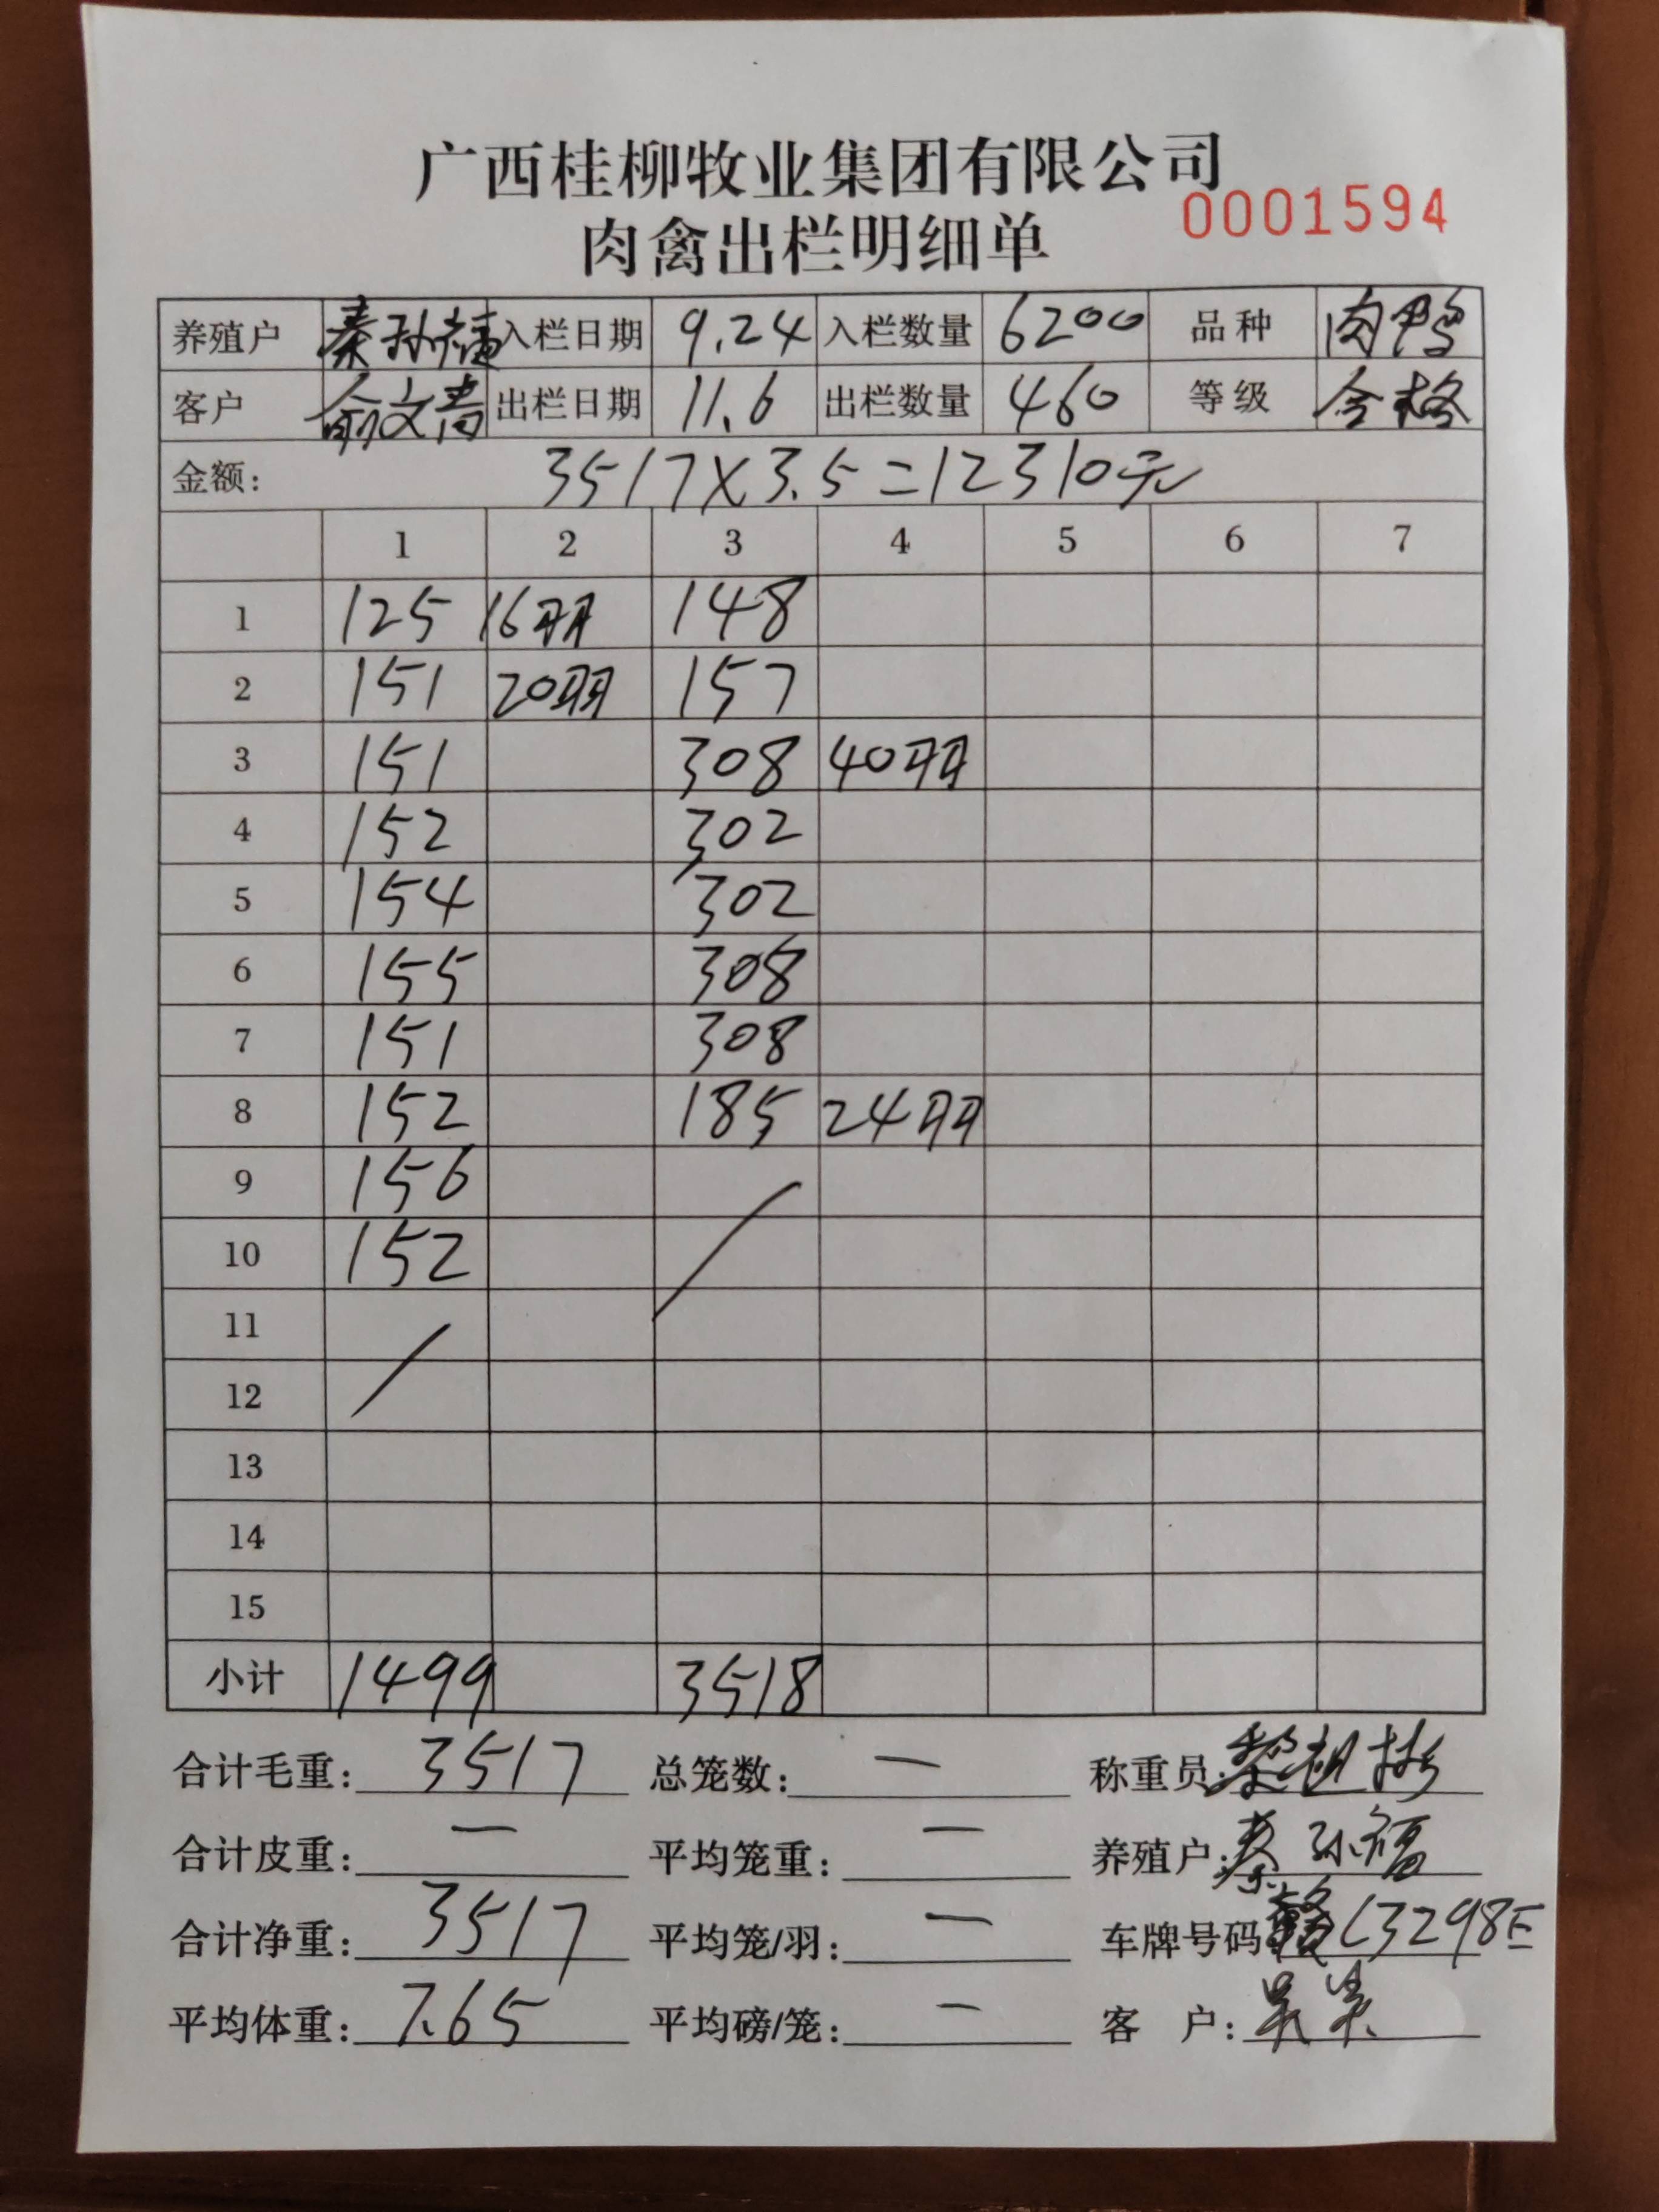 广西桂柳牧业集团有限公司
肉禽出栏明细单 0001594
养殖户 秦孙福 入栏日期 9.24 入栏数量 6200 品种 肉鸭
客户 俞文青 出栏日期 11.6 出栏数量 460 等级 合格
金额: 3517×3.5=12310元
1 2 3 4 5 6 7
1 125 16羽 148
2 151 20羽 157
3 151 308 40羽
4 152 302
5 154 302
6 155 308
7 151 308
8 152 185 24羽
9 156
10 152
11
12
13
14
15
小计 1499 3518
合计毛重: 3517 总笼数: — 称重员: 黎祖彬
合计皮重: — 平均笼重: — 养殖户: 秦孙福
合计净重: 3517 平均笼/羽: — 车牌号码 赣C3298E
平均体重: 7.65 平均磅/笼: — 客 户: